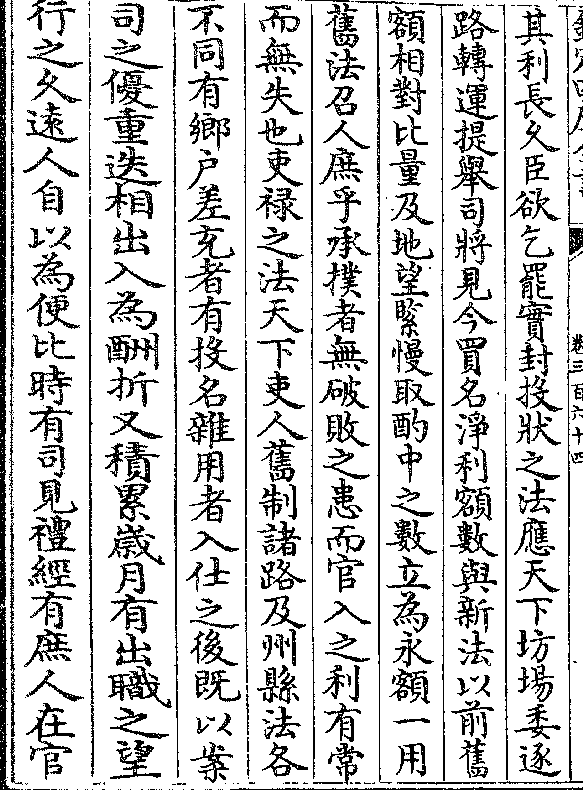 卷三百六十四
其利長久臣欲乞罷實封投狀之法應天下坊場委逐
路轉運提舉司將見今買名淨利額數與新法以前舊
額相對比量及地望緊慢取酌中之數立為永額一用
舊法召人庶乎承撲者無破敗之患而官入之利有常
而無失也吏禄之法天下吏人舊制諸路及州縣法各
不同有鄉户差充者有投名雜用者入仕之後既以案
司之優重迭相出入為酬折又積累歲月有出職之望
行之久遠人自以為便比時有司見禮經有庶人在官